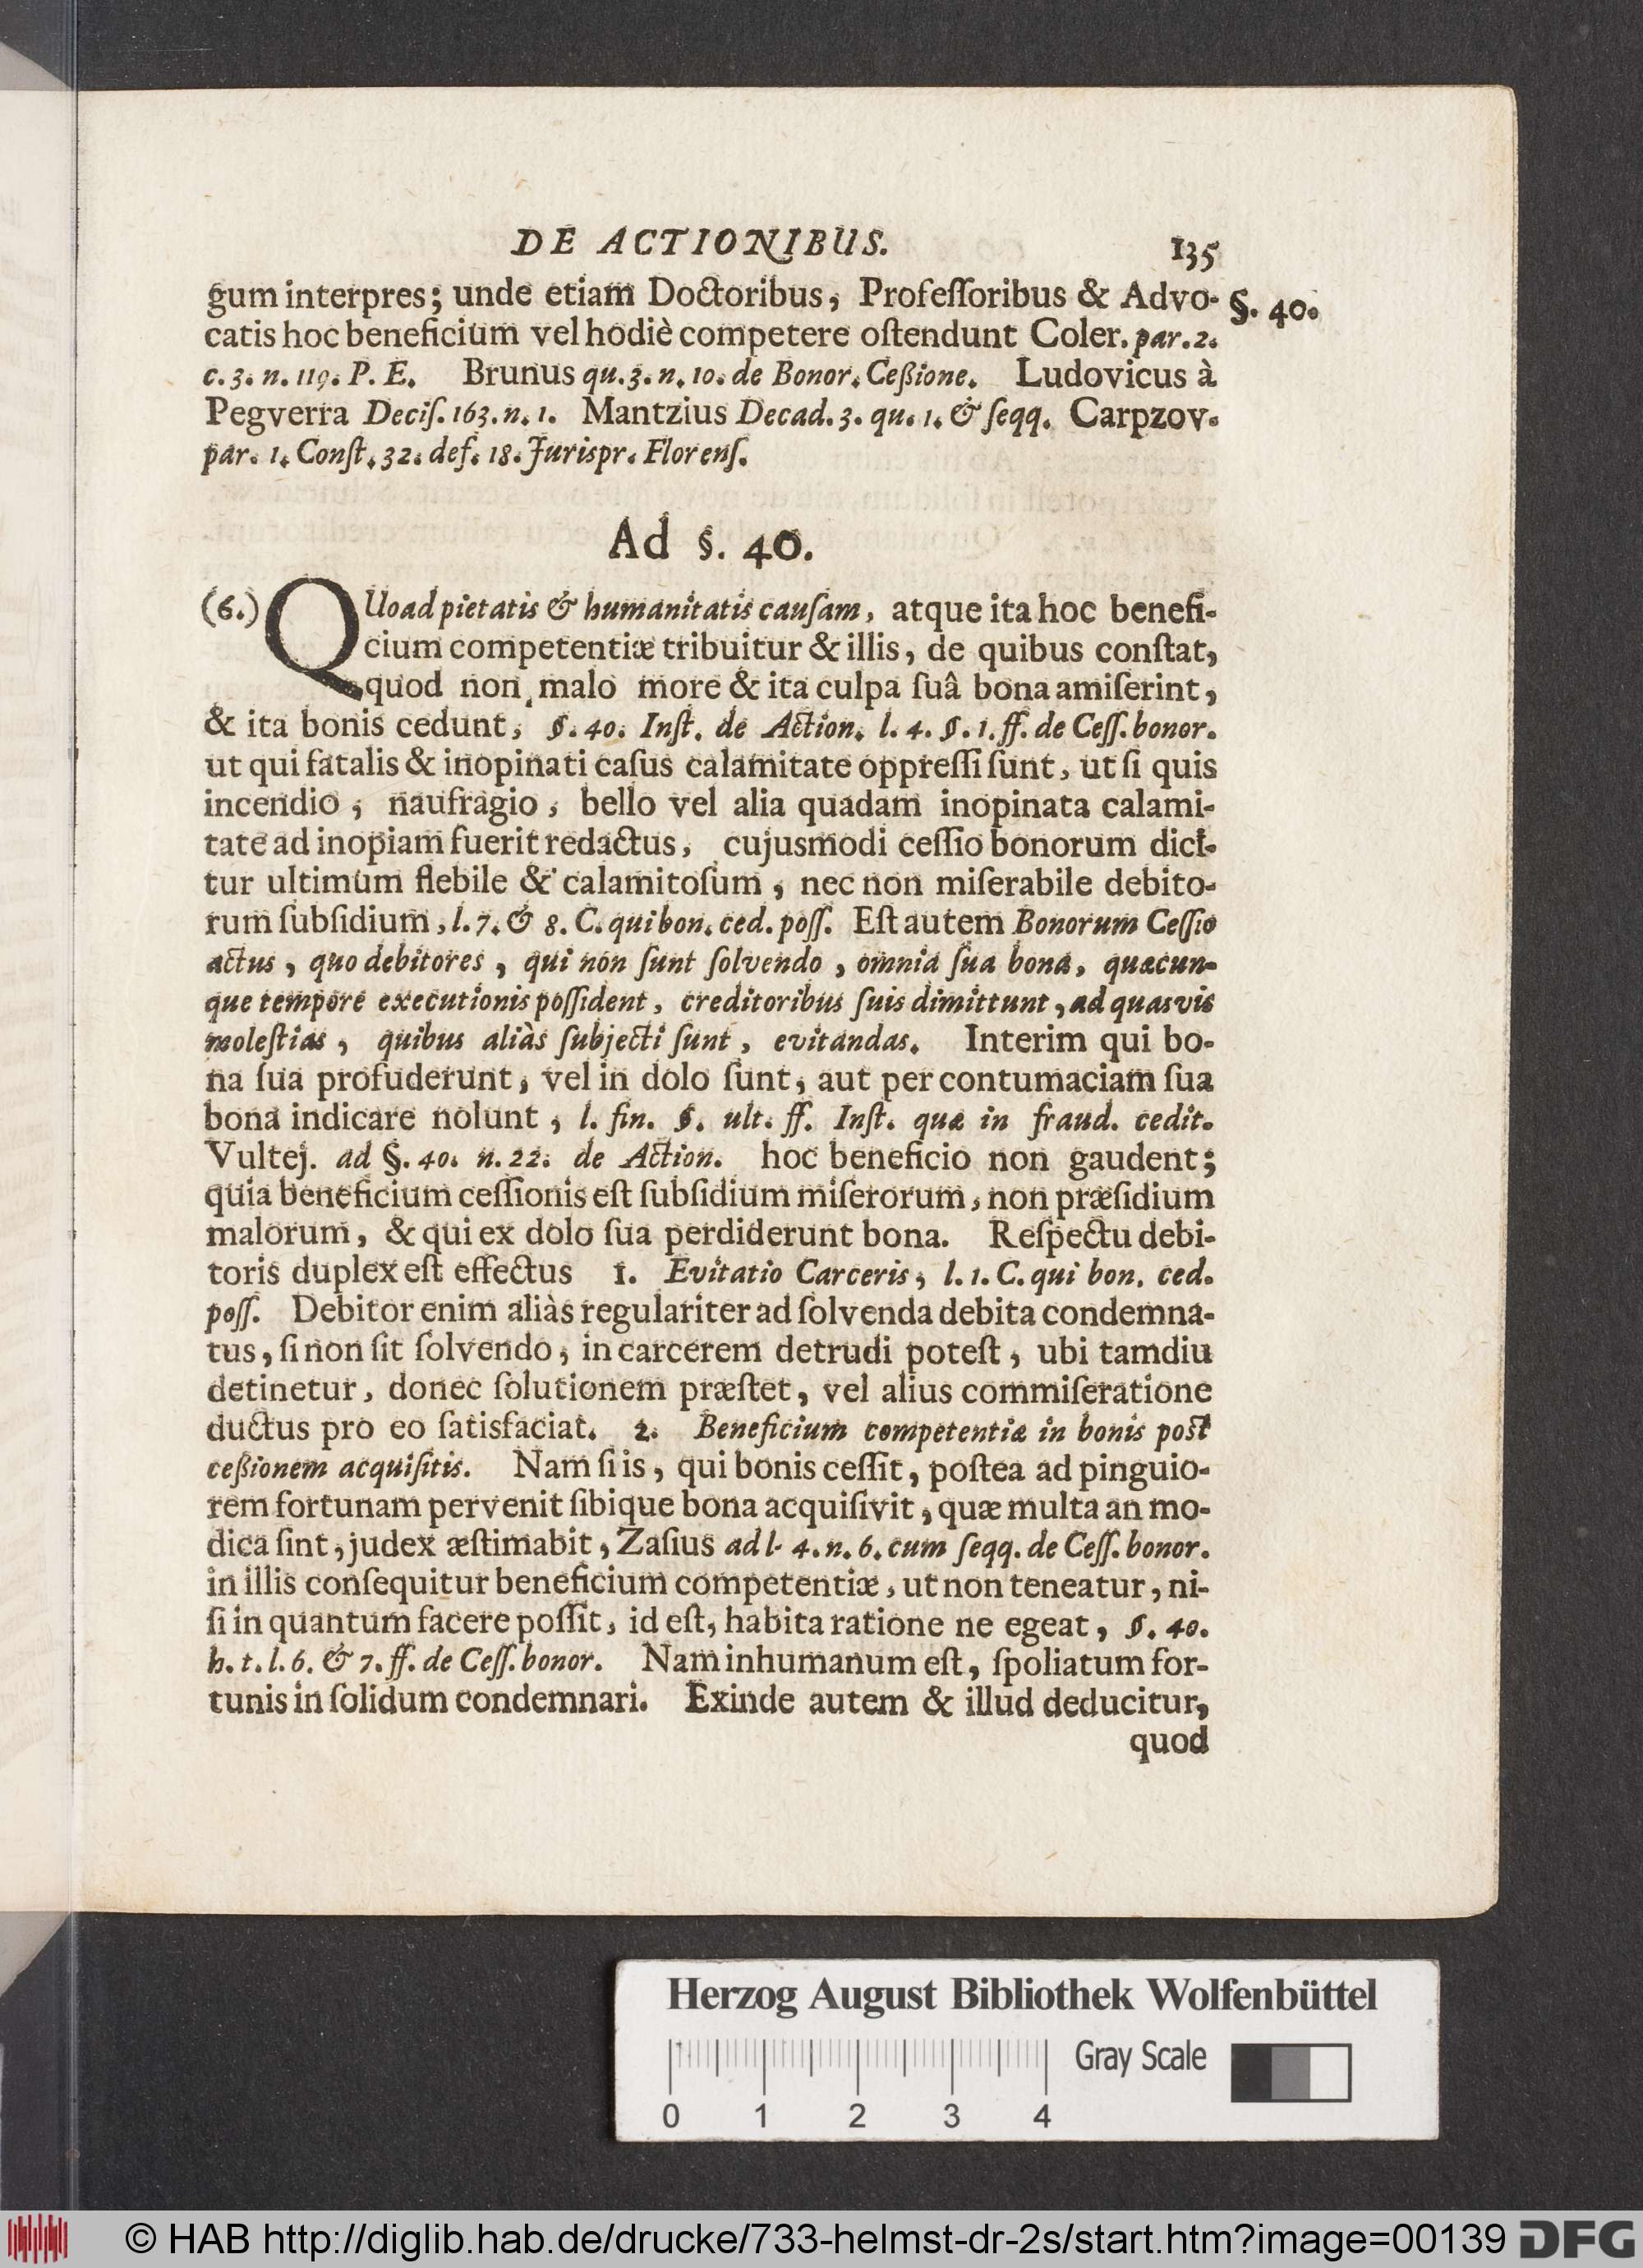 DE ACTIONIBUS. 135
gum interpres; unde etiam Doctoribus, Profeſſoribus & Advo- §. 40.
catis hoc beneficium vel hodiè competere oſtendunt Coler. par. 2.
c. 3. n. 119. P. E. Brunus qu. 3. n. 10. de Bonor. Ceßione. Ludovicus à
Pegverra Deciſ. 163. n. 1. Mantzius Decad. 3. qu. 1. & ſeqq. Carpzov.
par. 1. Conſt. 32. def. 18. Jurispr. Florenſ.
Ad §. 40.
(6.) QUoad pietatis & humanitatis cauſam, atque ita hoc benefi-
cium competentiæ tribuitur & illis, de quibus conſtat,
quod non malo more & ita culpa ſuâ bona amiſerint,
& ita bonis cedunt, §. 40. Inſt. de Action. l. 4. §. 1. ff. de Ceſſ. bonor.
ut qui fatalis & inopinati caſus calamitate oppreſſi ſunt, ut ſi quis
incendio, naufragio, bello vel alia quadam inopinata calami-
tate ad inopiam fuerit redactus, cujusmodi ceſſio bonorum dici-
tur ultimum flebile & calamitoſum, nec non miſerabile debito-
rum ſubſidium, l. 7. & 8. C. qui bon. ced. poſſ. Eſt autem Bonorum Ceſſio
actus, quo debitores, qui non ſunt ſolvendo, omnia ſua bona, quæcun-
que tempore executionis poſſident, creditoribus ſuis dimittunt, ad quasvis
moleſtias, quibus aliàs ſubjecti ſunt, evitandas. Interim qui bo-
na ſua profuderunt, vel in dolo ſunt, aut per contumaciam ſua
bona indicare nolunt, l. fin. §. ult. ff. Inſt. quæ in fraud. cedit.
Vultej. ad §. 40. n. 22. de Action. hoc beneficio non gaudent;
quia beneficium ceſſionis eſt ſubſidium miſerorum, non præſidium
malorum, & qui ex dolo ſua perdiderunt bona. Reſpectu debi-
toris duplex eſt effectus 1. Evitatio Carceris, l. 1. C. qui bon. ced.
poſſ. Debitor enim aliàs regulariter ad ſolvenda debita condemna-
tus, ſi non ſit ſolvendo, in carcerem detrudi poteſt, ubi tamdiu
detinetur, donec ſolutionem præſtet, vel alius commiſeratione
ductus pro eo ſatisfaciat. 2. Beneficium competentiæ in bonis poſt
ceßionem acquiſitis. Nam ſi is, qui bonis ceſſit, poſtea ad pinguio-
rem fortunam pervenit ſibique bona acquiſivit, quæ multa an mo-
dica ſint, judex æſtimabit, Zaſius ad l. 4. n. 6. cum ſeqq. de Ceſſ. bonor.
in illis conſequitur beneficium competentiæ, ut non teneatur, ni-
ſi in quantum facere poſſit, id eſt, habita ratione ne egeat, §. 40.
h. t. l. 6. & 7. ff. de Ceſſ. bonor. Nam inhumanum eſt, ſpoliatum for-
tunis in ſolidum condemnari. Exinde autem & illud deducitur,
quod
Herzog August Bibliothek Wolfenbüttel
Gray Scale
0 1 2 3 4
© HAB http://diglib.hab.de/drucke/733-helmst-dr-2s/start.htm?image=00139 DFG